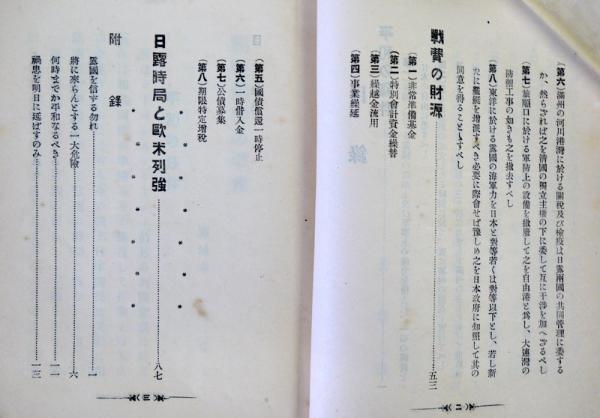 (第六)滿州の河川港灣に於ける關稅及び檢疫は日露兩國の共同管理に委する
か、然らざれば之を淸國の獨立主權の下に委して互に干涉を加へざるべし
(第七)旅順口に於ける軍陣上の設備を撤廢して之を自由港と爲し、大連灣の
防禦工事の如きも之を撤去すべし
(第八)東洋に於ける露國の海軍力を日本と對等若くは對等以下とし、若し新
たに艦艇を增派すべき必要に際會せば豫じめ之を日本政府に知照して其の
同意を得ることゝすべし
戰費の財源……五三
(第一)非常準備基金
(第二)特別會計資金繰替
(第三)繰越金流用
(第四)事業繰延
二
(第五)國債償還一時停止
(第六)一時借入金
(第七)公債募集
(第八)期限特定增稅
* * * * * *
日露時局と歐米列强……八七
* * * * * *
附錄
露國を信する勿れ……一
將に來らんとする一大危險……六
何時までか平和なるべき……一一
禍患を明日に延ばすのみ……一三
三